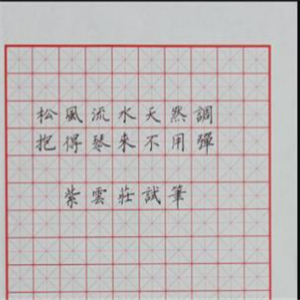 松風流水天然調
抱得琴来不用彈
紫雲莊試筆